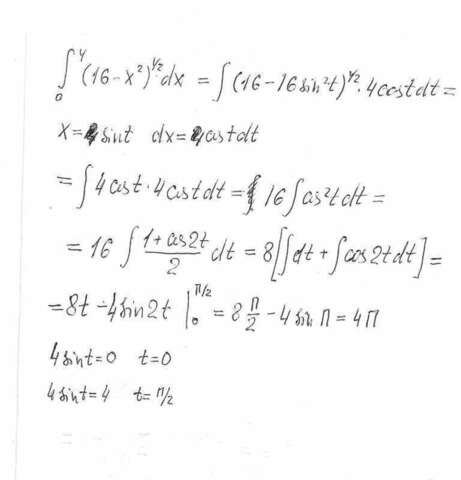 ∫₀⁴ (16-x²)^1/2 dx = ∫(16-16sin²t)^1/2 · 4cost dt =
x=4sint dx=4cost dt
= ∫4cost·4cost dt = 16∫cos²t dt =
= 16 ∫ (1+cos2t)/2 dt = 8[∫dt + ∫cos2t dt] =
= 8t - 4sin2t |₀^π/2 = 8 π/2 - 4 sin π = 4π
4sint=0 t=0
4sint=4 t=π/2